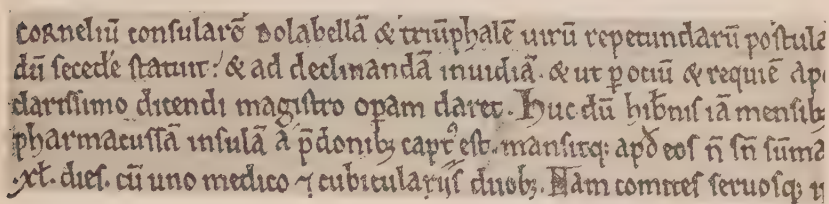 CORneliū conſularē Dolabellā & triūphalē uirū repetundarū poſtula
dū ſecede ſtatuit: & ad declinandā inuidiā. & ut p̱ ociū & requiē Apo
clariſſimo dicendi magiſtro opam daret. Huc dū hib̄niſ iā menſib;
pharmacuſſā inſulā a p̄donib; capt᷒ eſt. manſitq: apđ eoſ ñ ſn̄ ſūma
.xl. dieſ. cū uno medico ⁊ cubiculariiſ duob;. Nam comiteſ ſeruoſq;